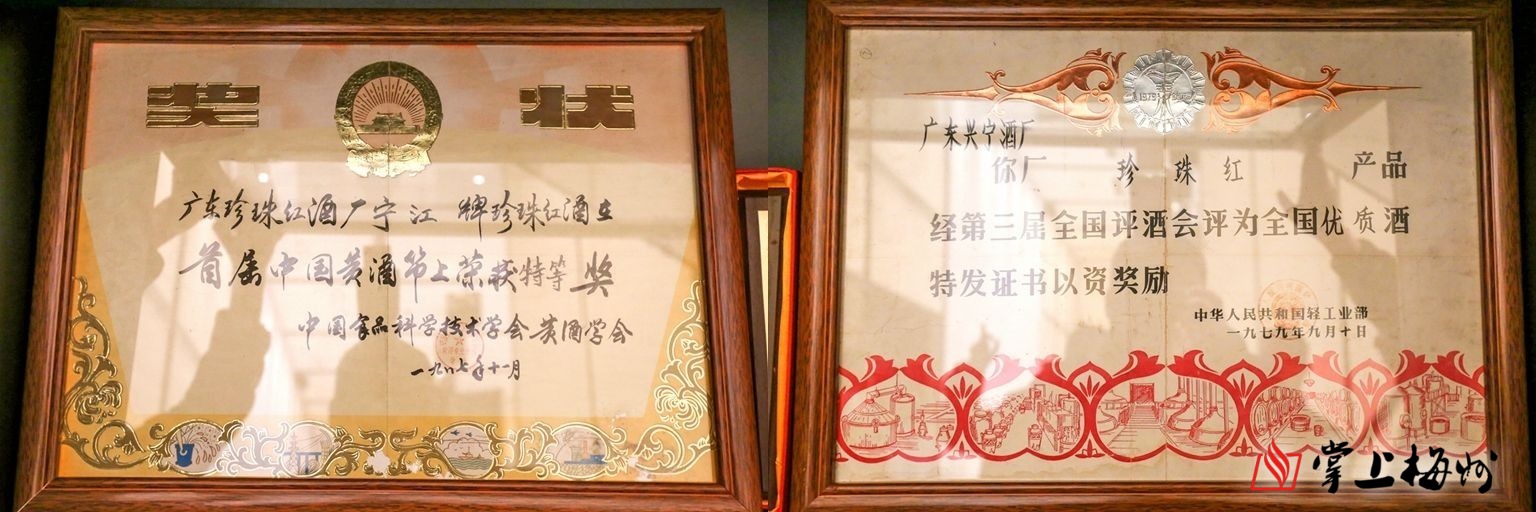 奖状
广东珍珠红酒厂宁江 牌珍珠红酒在
首届中国黄酒节上荣获特等 奖
中国食品科学技术学会黄酒学会
一九八七年十一月
广东兴宁酒厂
你厂 珍珠红 产品
经第三届全国评酒会评为全国优质酒
特发证书以资奖励
中华人民共和国轻工业部
一九七九年九月十日
掌上梅州